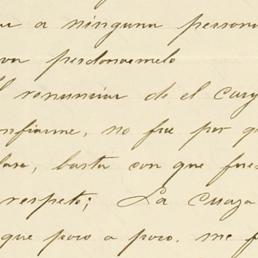 a ninguna persona
perdonarmelo
renunciar de el carg
onfiarme, no fue por q
base, basta con que fues
respeto; La cuaja
que poco a poco. me f